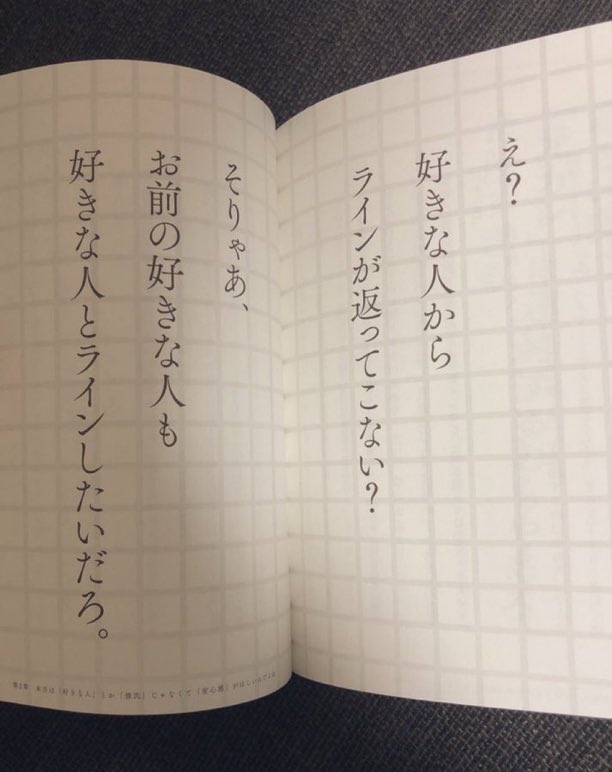 え？
好きな人から
ラインが返ってこない？
そりゃあ、
お前の好きな人も
好きな人とラインしたいだろ。
第2章 本当は「好きな人」とか「彼氏」じゃなくて「安心感」がほしいんでしょ